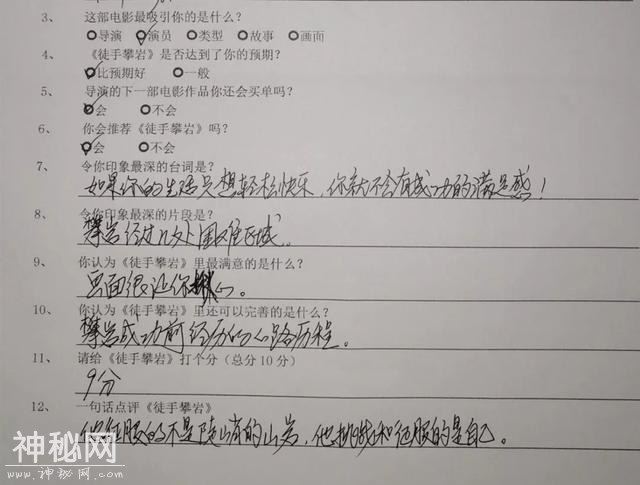 3、 这部电影最吸引你的是什么？
○导演 ○演员 ○类型 ○故事 ○画面
4、 《徒手攀岩》是否达到了你的预期？
○比预期好 ○一般
5、 导演的下一部电影作品你还会买单吗？
○会 ○不会
6、 你会推荐《徒手攀岩》吗？
○会 ○不会
7、 令你印象最深的台词是？
如果你的生活只想轻松快乐，你就不会有成功的满足感！
8、 令你印象最深的片段是？
攀岩经过几处困难区域。
9、 你认为《徒手攀岩》里最满意的是什么？
画面很让你 心。
10、 你认为《徒手攀岩》里还可以完善的是什么？
攀岩成功前经历的心路历程。
11、 请给《徒手攀岩》打个分（总分10分）
9分
12、 一句话点评《徒手攀岩》
他征服的不是陡峭的山岩，他挑战和征服的是自己。
神秘网
www.神秘网.com